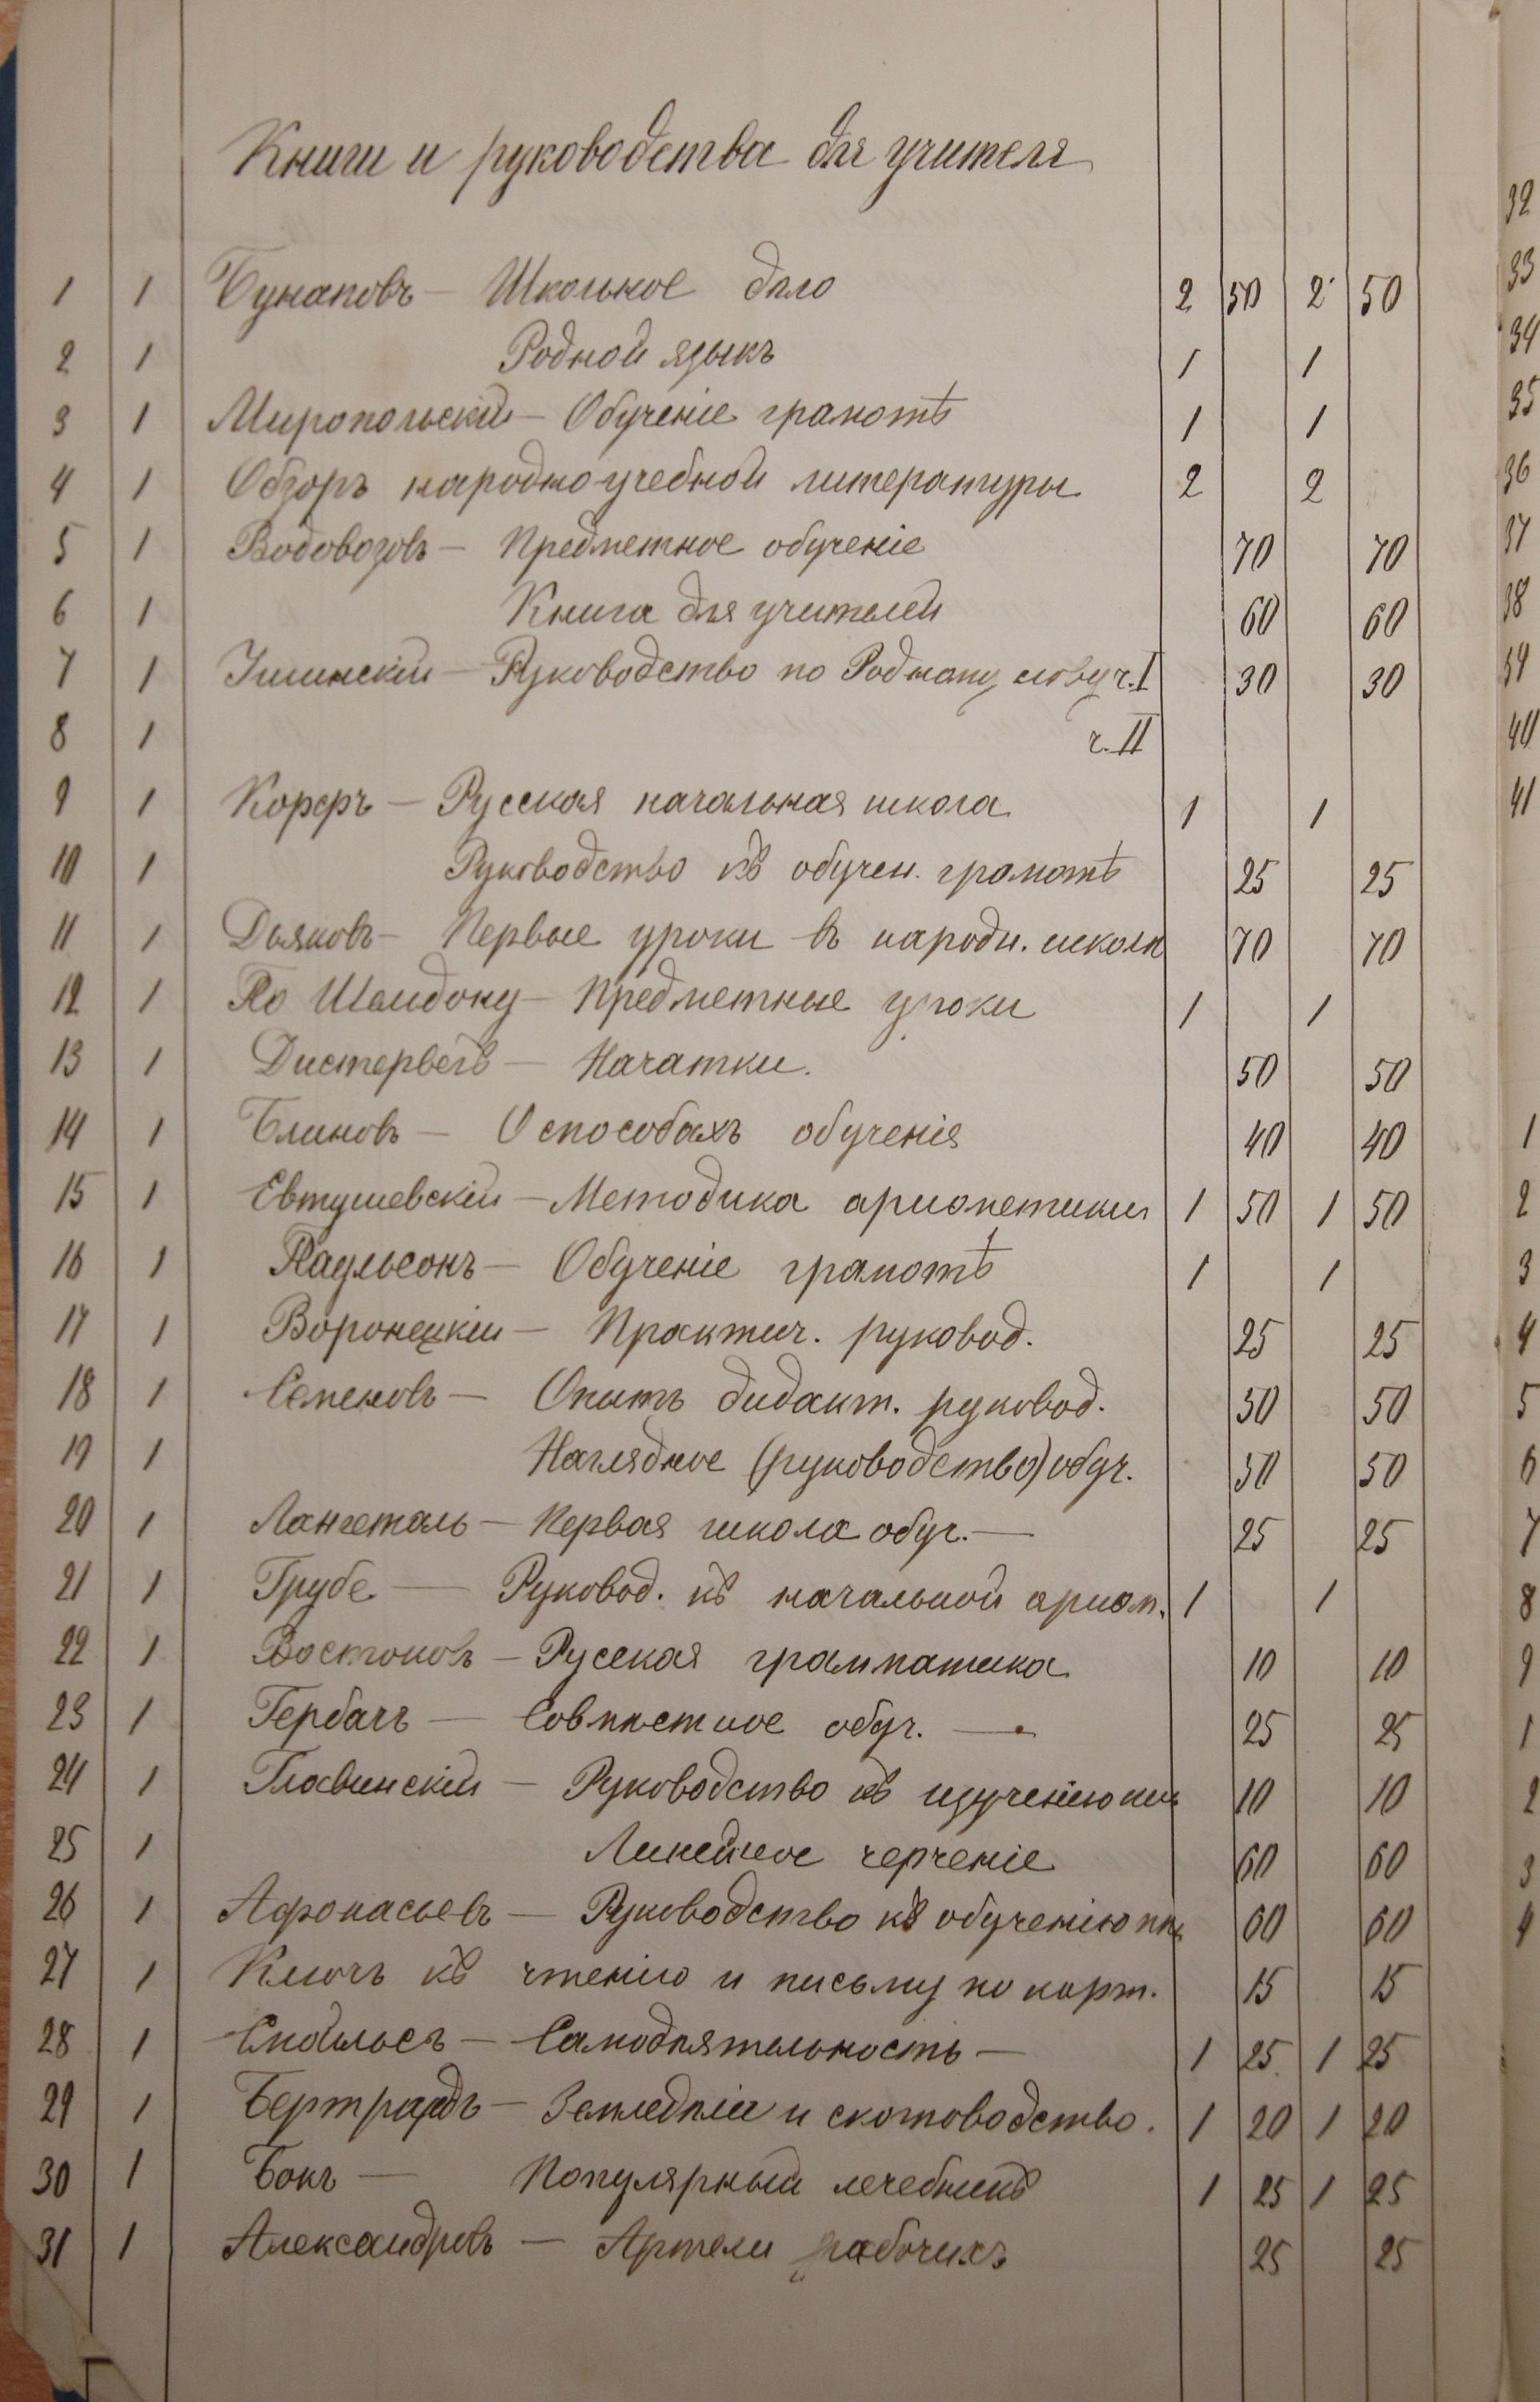 Книги и руководства для учителя
1 1 Бунаковъ — Школьное дѣло 2 50 2 50
2 1 Родной языкъ 1 1
3 1 Миропольскій — Обученіе грамотѣ 1 1
4 1 Обзоръ народно-учебной литературы 2 2
5 1 Водовозовъ — Предметное обученіе 70 70
6 1 Книга для учителей 60 60
7 1 Ушинскій — Руководство по Родному слову ч. I 30 30
8 1 ч. II
9 1 Корфъ — Русская начальная школа 1 1
10 1 Руководство къ обучен. грамотѣ 25 25
11 1 Дьяковъ — Первые уроки въ народн. школѣ 70 70
12 1 По Шелдону — Предметные уроки 1 1
13 1 Дистервегъ — Начатки. 50 50
14 1 Блиновъ — О способахъ обученія 40 40
15 1 Евтушевскій — Методика ариѳметики 1 50 1 50
16 1 Паульсонъ — Обученіе грамотѣ 1 1
17 1 Воронецкій — Практич. руковод. 25 25
18 1 Семеновъ — Опытъ дидакт. руковод. 50 50
19 1 Наглядное (руководство) обуч. 50 50
20 1 Лангеталь — Первая школа обуч. — 25 25
21 1 Грубе — Руковод. къ начальной ариѳм. 1 1
22 1 Востоковъ — Русская грамматика 10 10
23 1 Гербачъ — Совмѣстное обуч. — 25 25
24 1 Главинскій — Руководство къ изученію 10 10
25 1 Линейное черченіе 60 60
26 1 Афонасьевъ — Руководство къ обученію 60 60
27 1 Ключъ къ чтенію и письму по карт. 15 15
28 1 Смайльсъ — Самодѣятельность — 1 25 1 25
29 1 Бертрандъ — Земледѣліе и скотоводство. 1 20 1 20
30 1 Бокъ — Популярный лечебникъ 1 25 1 25
31 1 Александровъ — Артели рабочихъ 25 25
32
33
34
35
36
37
38
39
40
41
1
2
3
4
5
6
7
8
9
1
2
3
4